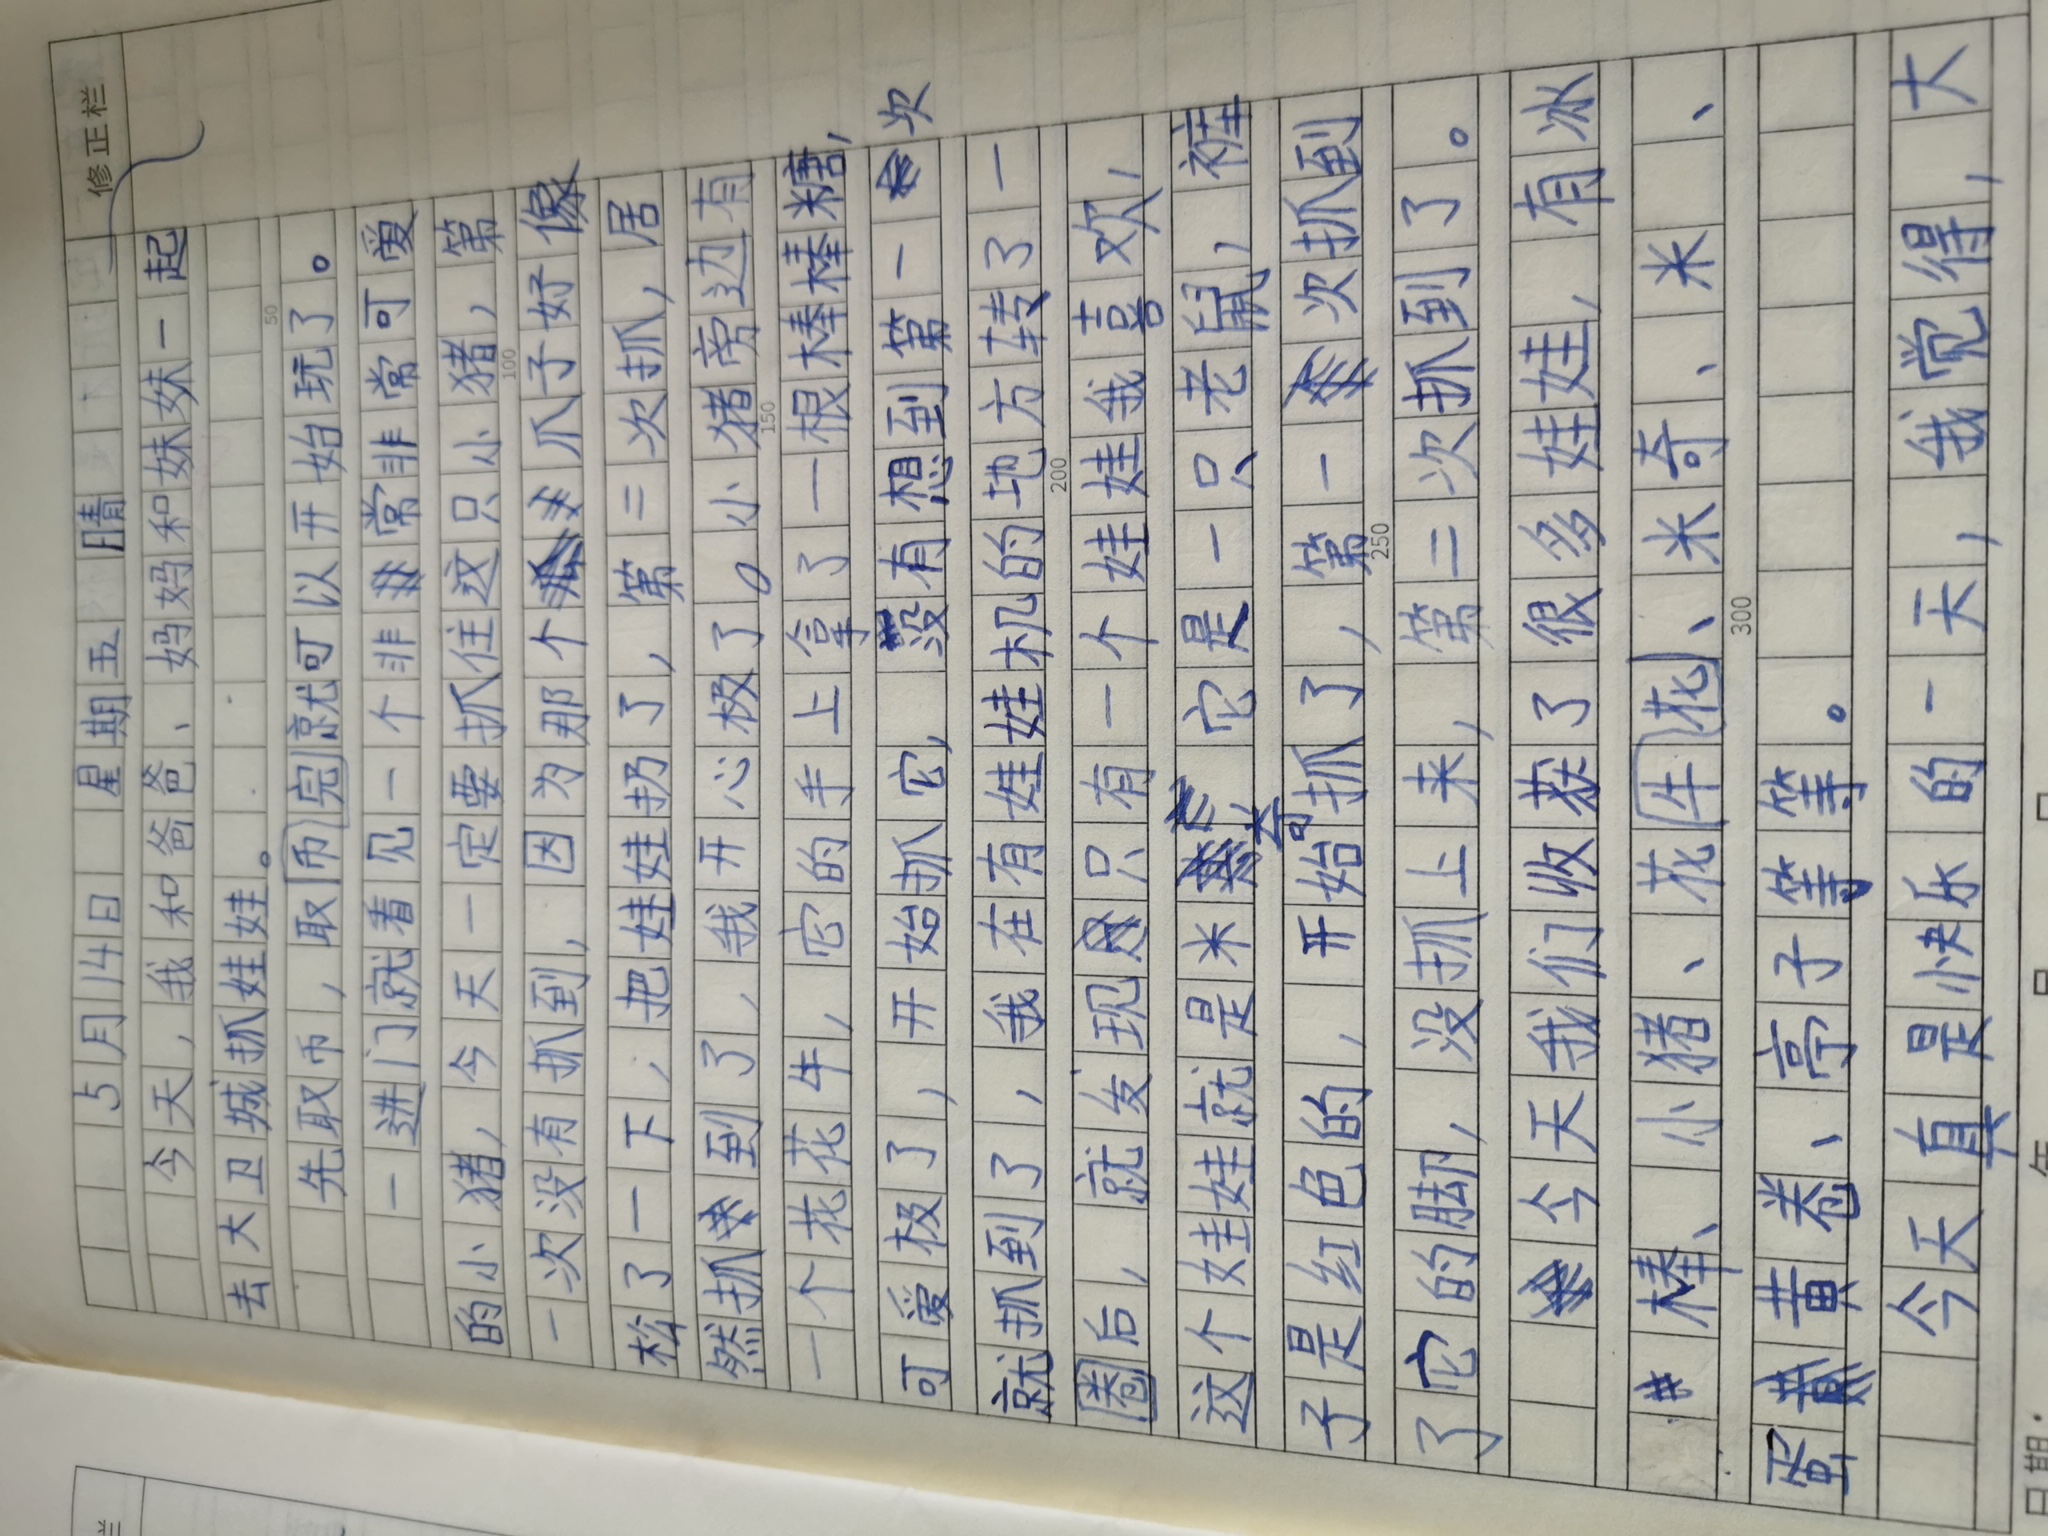 修正栏
5月14日 星期五 晴
今天，我和爸爸、妈妈和妹妹一起
去大卫城抓娃娃。
50
先取币，取币完就可以开始玩了。
一进门就看见一个非常非常可爱
的小猪，今天一定要抓住这只小猪，第
100
一次没有抓到，因为那个爪子好像
松了一下，把娃娃扔了，第二次抓，居
然抓到了，我开心极了。小猪旁边有
150
一个花花牛，它的手上拿了一根棒棒糖，
可爱极了，开始抓它，没有想到第一次
就抓到了，我在有娃娃机的地方转了一
200
圈后，就发现只有一个娃娃我喜欢，
这个娃娃就是米奇它是一只老鼠，裤
子是红色的，开始抓了，第一次抓到
250
了它的脚，没抓上来，第二次抓到了。
今天我们收获了很多娃娃，有冰
棒、小猪、花牛花、米奇、米、
300
蛋黄卷、亭子等等。
今天真是快乐的一天，我觉得，大
日期： 年 月 日
栏